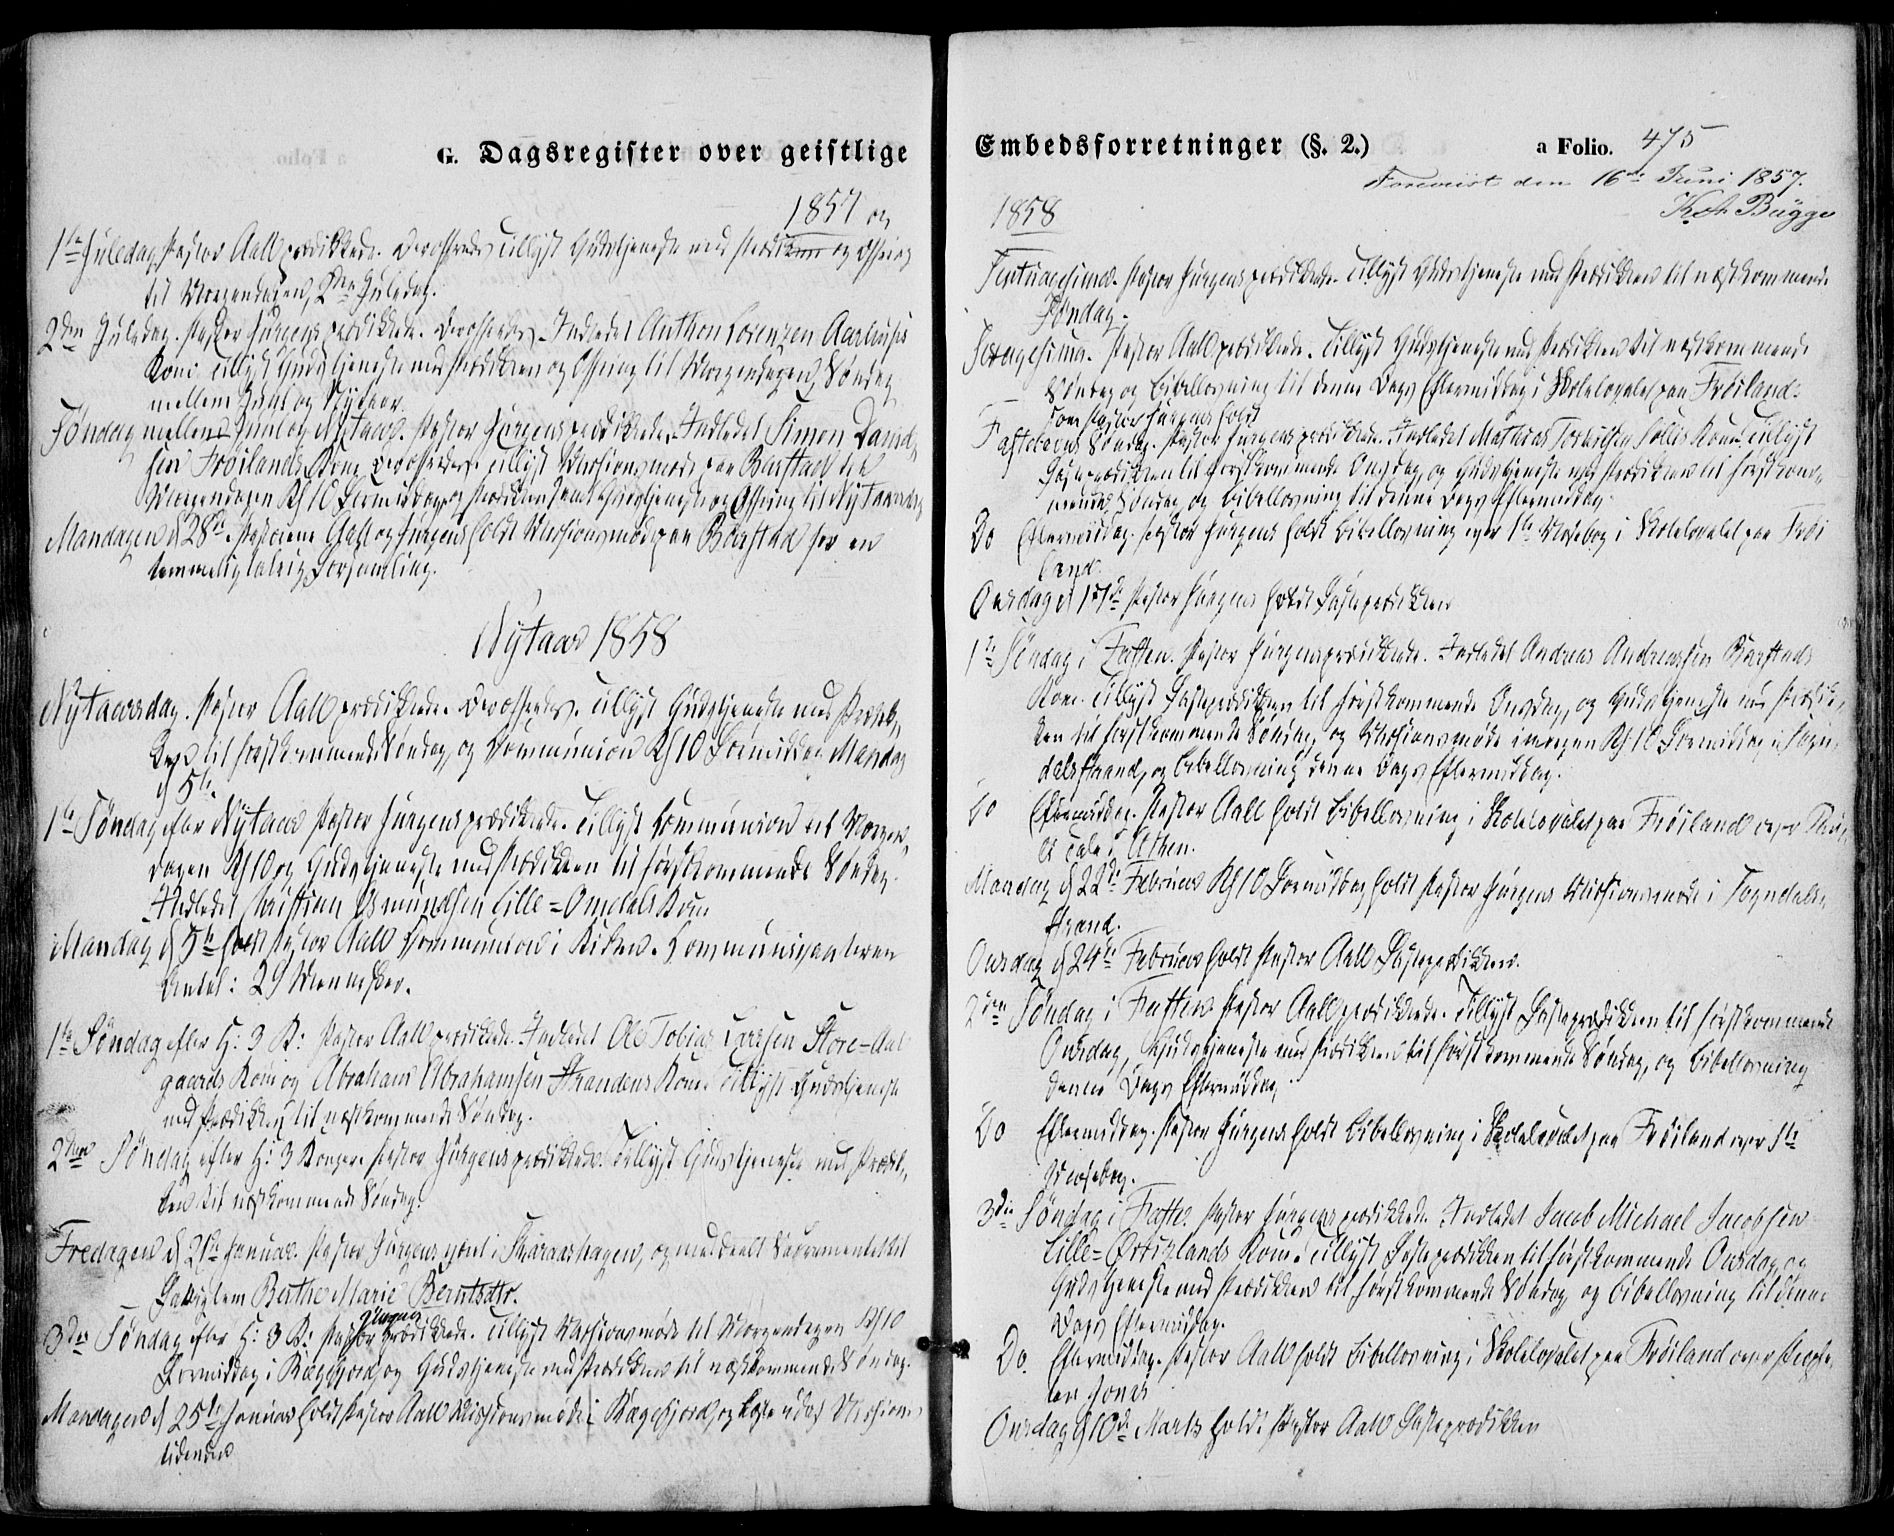 G. Dagsregister over geistlige
1857 og
1ste Juledag. Pastor Aall prædikede. Der ofredes. Tillyst Gudstjeneste med Prædiken og Ofring
til Morgendagen, 2den Juledag.
2den Juledag. Pastor Jürgens prædikede. Der ofredes. Indledet Anthon Lorenzen Aarhuus
Kone. Tillyst Gudstjeneste med Prædiken og Ofring til Morgendagen, Søndag
mellem Juul og Nytaar.
Søndag mellem Juul og Nytaar. Pastor Jürgens prædikede. Indledet Simon Davids
sen Frøilands Kone. Der ofredes. Tillyst Missionsmøde paa Barstad til
Morgendagen Kl 10 Formiddag, og Gudstjeneste og Ofring til Nytaarsdag
Mandagen d 28de Pastorerne Aall og Jürgens holdt Missionsmøde paa Barstad for en
temmelig talrig Forsamling.
Nytaar 1858
Nytaarsdag. Pastor Aall prædikede. Der ofredes. Tillyst Gudstjeneste med Prædi-
ken til førstkommende Søndag, og Communion Kl 10 Formiddag Mandag
d 5te
1ste Søndag efter Nytaar Pastor Jürgens prædikede. Tillyst Communion til Morgen-
dagen Kl 10 og Gudstjeneste med Prædiken til førstkommende Søndag.
Indledet Christian Osmundsen Lille-Omdals Kone
Mandag d 5te holdt Pastor Aall Communion i Kirken. Communicanternes
Antal: 29 Mennesker.
1ste Søndag efter H: 3 K: Pastor Aall prædikede. Indledet Ole Tobias Larsen Store-Aal
gaards Kone og Abraham Abrahamsen Strandens Kone. Tillyst Gudstjeneste
med Prædiken til næstkommende Søndag.
2den Søndag efter H: 3 Konger. Pastor Jürgens prædikede. Tillyst Gudstjeneste med Prædi-
ken til næstkommende Søndag.
Fredagen d 21de Januar. Pastor Jürgens og meddeelt Sacramentet til
Berthe Marie Berntsdtr.
3die Søndag efter H: 3 K: Pastor Jürgens prædikede. Tillyst Missionsmøde til Morgendagen Kl 10
Formiddag i Rægefjord, og Gudstjeneste med Prædiken til næstkommende Søndag.
Mandagen d 25de Januar holdt Pastor Aall Missionsmøde i Rægefjord, og læste ud af Missions
tidende
Embedsforretninger (§. 2.)
a Folio. 475
Foreviist den 16de Juni 1857.
Bugge
1858
Septuagesima. Pastor Jürgens prædikede. Tillyst Gudstjeneste med Prædiken til næstkommende
Søndag.
Sexagesima. Pastor Aall prædikede. Tillyst Gudstjeneste med Prædiken til næstkommende
Søndag og Bibellæsning til denne Dags Eftermiddag i Skolelocalet paa Frøiland.
som Pastor Jürgens holdt
Fastelavns Søndag. Pastor Jürgens prædikede. Indledet Mathias Torkelsen Sollis Kone. Tillyst
Fasteprædiken til førstkommende Onsdag, og Gudstjeneste med Prædiken til førstkom-
mende Søndag og Bibellæsning til denne Dags Eftermiddag.
Do Eftermiddag. Pastor Jürgens holdt Bibellæsning over 1ste Mosebog i Skolelocalet paa Frøi
land.
Onsdag d 17de Pastor Jürgens holdt Fasteprædiken
1ste Søndag i Fasten. Pastor Jürgens prædikede. Indledet Andreas Andreassen Barstads
Kone. Tillyst Fasteprædiken til førstkommende Onsdag, og Gudstjeneste med Prædi-
ken til førstkommende Søndag, og Missionsmøde imorgen Kl 10 Formiddag i Sogn-
dalsstrand, og Bibellæsning denne Dags Eftermiddag.
Do Eftermiddag. Pastor Aall holdt Bibellæsning i Skolelocalet paa Frøiland over Pau-
li Tale i Athen.
Mandag d 22de Februar Kl 10 Formiddag holdt Pastor Jürgens Missionsmøde i Sogndals-
strand.
Onsdag d 24de Februar holdt Pastor Aall Fasteprædiken.
2den Søndag i Fasten Pastor Aall prædikede. Tillyst Fasteprædiken til førstkommende
Onsdag, Gudstjeneste med Prædiken til førstkommende Søndag, og Bibellæsning
denne Dags Eftermiddag.
Do Eftermiddag. Pastor Jürgens holdt Bibellæsning i Skolelocalet paa Frøiland over 1ste
Mosebog.
3die Søndag i Faste. Pastor Jürgens prædikede. Indledet Jacob Michael Jacobsen
Lille-Østrilands Kone. Tillyst Fasteprædiken til førstkommende Onsdag, og
Gudstjeneste med Prædiken til førstkommende Søndag og Bibellæsning til denne
Dags Eftermiddag.
Do. Eftermiddag. Pastor Aall holdt Bibellæsning i Skolelocalet paa Frøiland over Prophe-
ten Jonas
Onsdag d 10de Marts holdt Pastor Aall Fasteprædiken